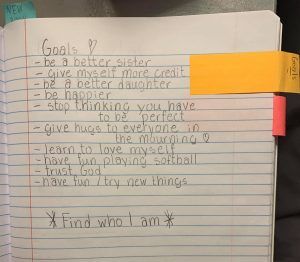 NEW
Goals ♡
- be a better sister
- give myself more credit
- be a better daughter
- be happier
- stop thinking you have
to be perfect
- give hugs to everyone in
the mourning ♡
- learn to love myself
- have fun playing softball
- trust God
- have fun / try new things
* Find who I am *
Goals